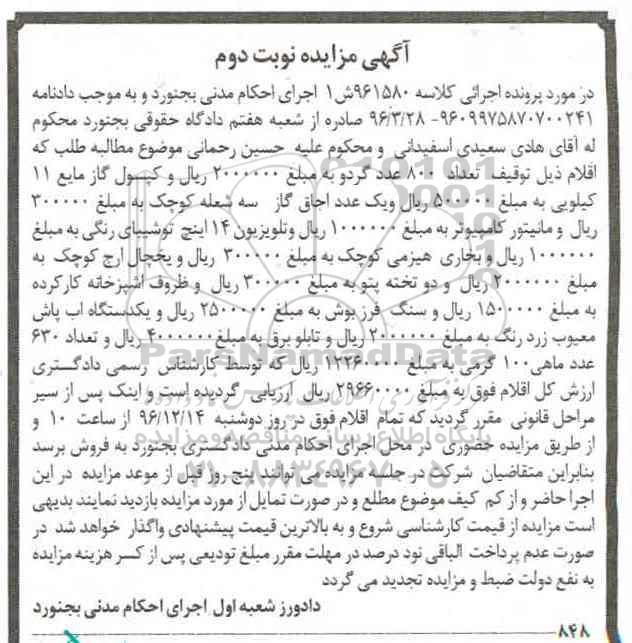 آگهی مزایده نوبت دوم
در مورد پرونده اجرائی کلاسه ۹۶۱۵۸۰ش۱ اجرای احکام مدنی بجنورد و به موجب دادنامه
۹۶۰۹۹۷۵۸۷۰۷۰۰۲۴۱- ۹۶/۳/۲۸ صادره از شعبه هفتم دادگاه حقوقی بجنورد محکوم
له آقای هادی سعیدی اسفیدانی و محکوم علیه حسین رحمانی موضوع مطالبه طلب که
اقلام ذیل توقیف تعداد ۸۰۰ عدد گردو به مبلغ ۲۰۰۰۰۰۰ ریال و کپسول گاز مایع ۱۱
کیلویی به مبلغ ۵۰۰۰۰۰ ریال ویک عدد اجاق گاز سه شعله کوچک به مبلغ ۳۰۰۰۰۰
ریال و مانیتور کامپیوتر به مبلغ ۱۰۰۰۰۰۰ ریال وتلویزیون ۱۴ اینچ توشیبای رنگی به مبلغ
۱۰۰۰۰۰۰ ریال و بخاری هیزمی کوچک به مبلغ ۳۰۰۰۰۰ ریال و یخچال ارج کوچک به
مبلغ ۲۰۰۰۰۰۰ ریال و دو تخته پتو به مبلغ ۳۰۰۰۰۰ ریال و ظروف آشپزخانه کارکرده
به مبلغ ۱۵۰۰۰۰۰ ریال و سنگ فرز بوش به مبلغ ۲۵۰۰۰۰۰ ریال و یکدستگاه اب پاش
معیوب زرد رنگ به مبلغ ۲۰۰۰۰۰۰ ریال و تابلو برق به مبلغ ۴۰۰۰۰۰۰ ریال و تعداد ۶۳۰
عدد ماهی ۱۰۰ گرمی به مبلغ ۱۲۲۶۰۰۰۰ ریال که توسط کارشناس رسمی دادگستری
ارزش کل اقلام فوق به مبلغ ۲۹۶۶۰۰۰۰ ریال ارزیابی گردیده است و اینک پس از سیر
مراحل قانونی مقرر گردید که تمام اقلام فوق در روز دوشنبه ۹۶/۱۲/۱۴ از ساعت ۱۰ و
از طریق مزایده حضوری در محل اجرای احکام مدنی دادگستری بجنورد به فروش برسد
بنابراین متقاضیان شرکت در جلسه مزایده می توانند پنج روز قبل از موعد مزایده در این
اجرا حاضر و از کم کیف موضوع مطلع و در صورت تمایل از مورد مزایده بازدید نمایند بدیهی
است مزایده از قیمت کارشناسی شروع و به بالاترین قیمت پیشنهادی واگذار خواهد شد در
صورت عدم پرداخت الباقی نود درصد در مهلت مقرر مبلغ تودیعی پس از کسر هزینه مزایده
به نفع دولت ضبط و مزایده تجدید می گردد
دادورز شعبه اول اجرای احکام مدنی بجنورد
۸۴۸
ParsNamadData
پایگاه اطلاع رسانی مناقصه و مزایده
۰۲۱-۸۸۳۴۹۶۷۰-۵